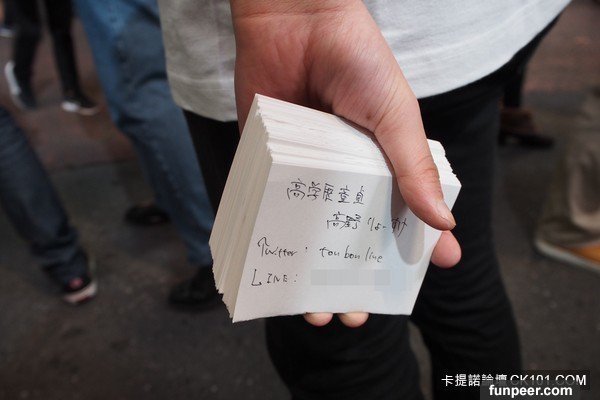 高学歴童貞
高野りょーすけ
Twitter: toubouline
LINE:
卡提諾論壇CK101.COM
funpeer.com